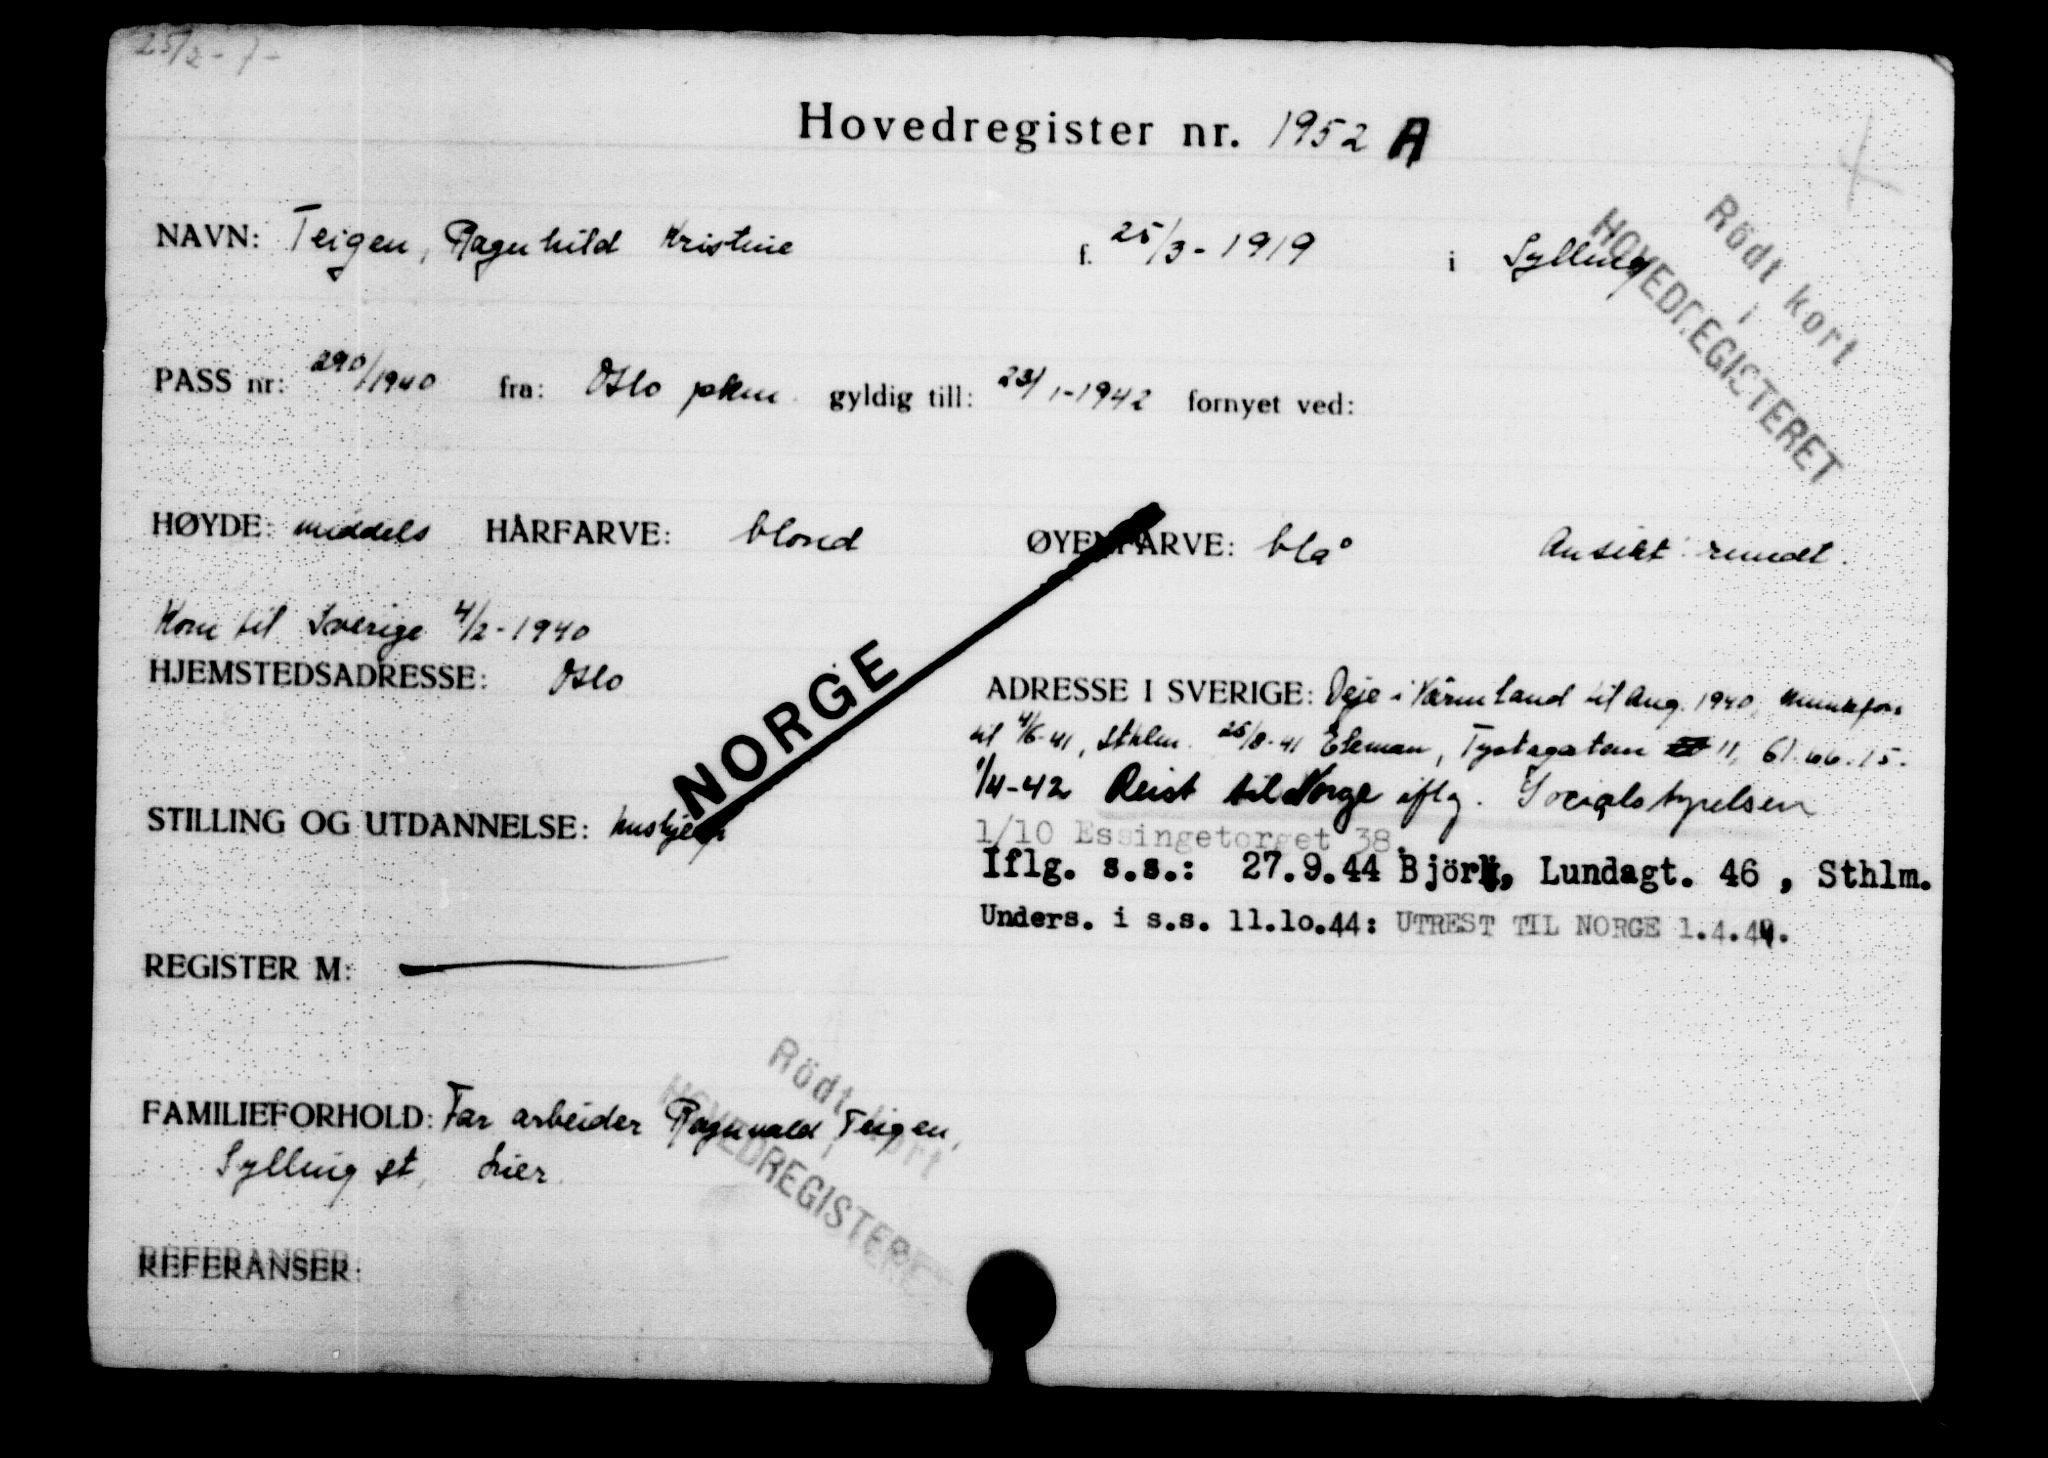 25/2 - 7 -
Hovedregister nr. 1952 A
Rödt kort
i
HOVEDREGISTERET
NAVN: Teigen, Ragnhild Kristine f. 25/3 - 1919 i Sylling
PASS nr: 290/1940 fra: Oslo pkm. gyldig till: 23/1-1942 fornyet ved:
HØYDE: middels HÅRFARVE: blond ØYENFARVE: blå Ansikt: rundt.
Kom til Sverige 4/2-1940
HJEMSTEDSADRESSE: Oslo
NORGE
ADRESSE I SVERIGE: Deje i Värmland til aug. 1940, Munkfors
til 4/6-41, Sthlm. 25/8-41 Ekman, Tystagatan 11, 61.66.15.
1/4-42 Reist til Norge iflg. Socialstyrelsen
STILLING OG UTDANNELSE: hushjelp
1/10 Essingetorget 38.
Iflg. s.s.: 27.9.44 Björk, Lundagt. 46 , Sthlm.
Unders. i s.s. 11.10.44: UTREST TIL NORGE 1.4.44.
REGISTER M:
Rödt kort
i
HOVEDREGISTERET
FAMILIEFORHOLD: Far arbeider Ragnvald Teigen,
Sylling st, Lier.
REFERANSER: